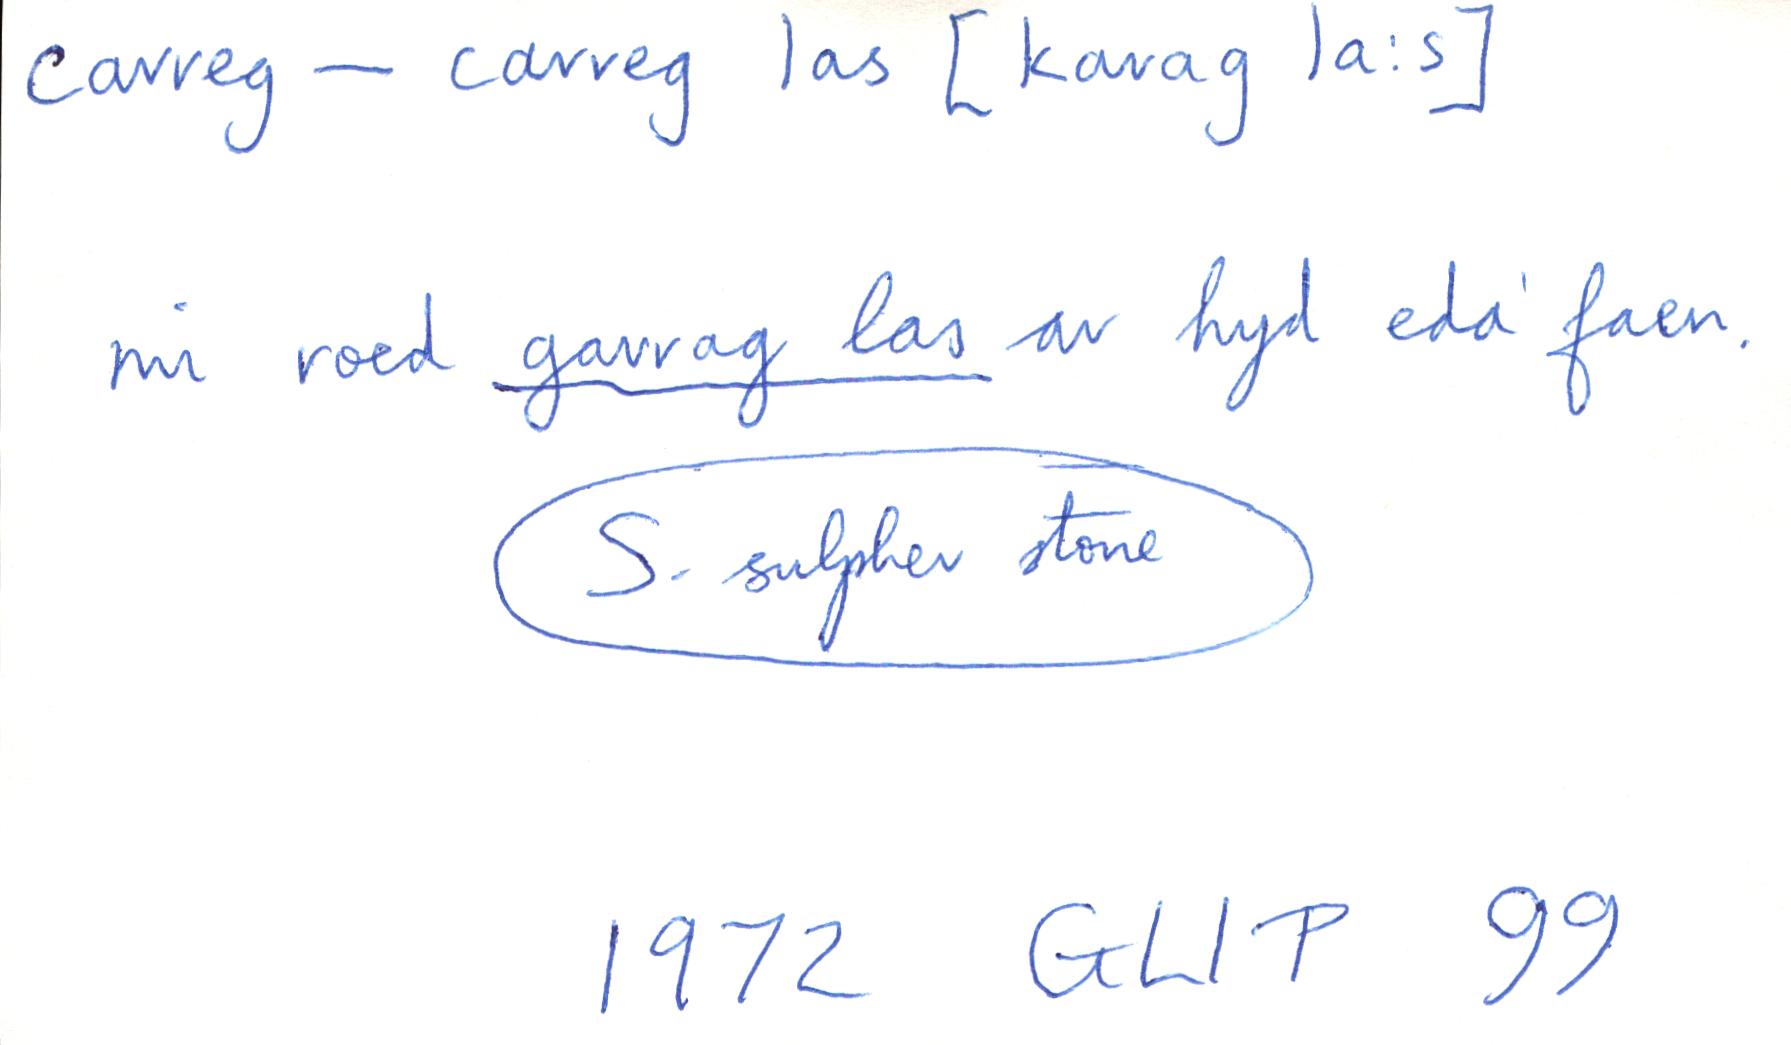 carreg — carreg las [karag la:s]
mi roed garrag las ar hyd eda' faen.
S. sulpher stone
1972 GLIP 99